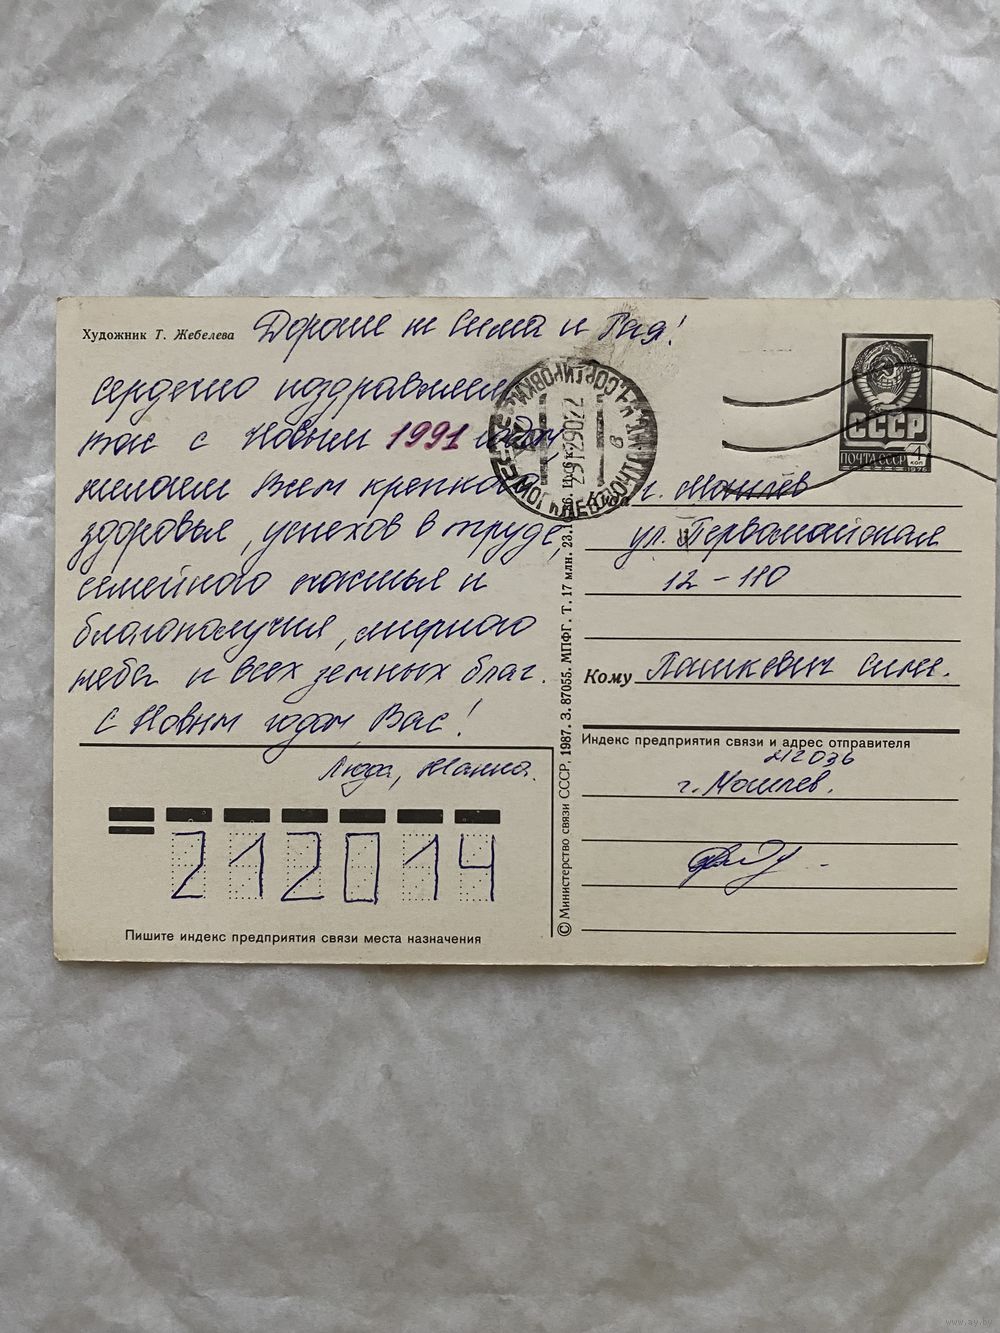 Художник Т. Жебелева
Дорогие Сима и Гая!
Сердечно поздравляем
Вас с Новым 1991 годом
желаем Всем крепкого
здоровья, успехов в труде,
семейного счастья и
благополучия, мирного
неба и всех земных благ.
С Новым годом Вас!
Люда, Жанна.
212014
Пишите индекс предприятия связи места назначения
© Министерство связи СССР, 1987. З. 87055. МПФГ. Т. 17 млн. 23.
СССР
ПОЧТА СССР 4 коп
1976
г. Могилёв
ул. Первомайская
12-110
Кому Пашкевич Симе.
Индекс предприятия связи и адрес отправителя
212036
г. Могилев.
www.ay.by